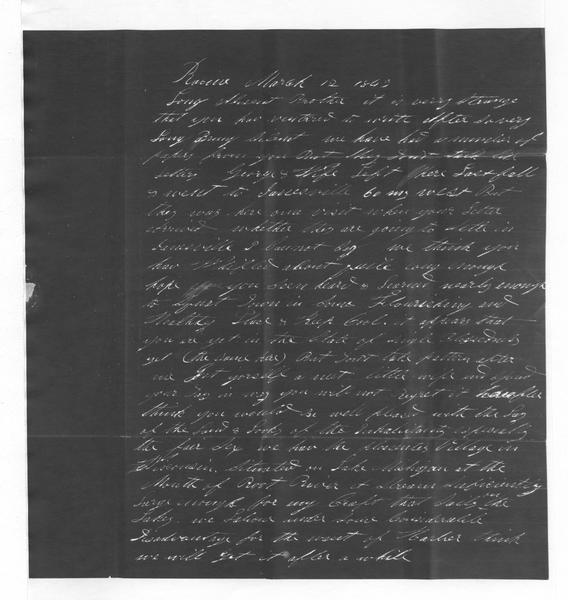 Racine March 12 1843
Long Absent Brother it is very strange
that you have ventured to write after so very
long being silent we have had a number of
papers from you But they dont talk like
letters George & Wife Left here Last fall
& went to Janesville 60 m west But
they was here on a visit when your Letter
arrived whether they are going to settle in
Janesville I cannot say we think you
have about long enough
hope you been heard & learned nearly enough
to Down in some Flourishing and
Healthy Place & Keep Cool. it appears that
you are yet in the State of Single
yet (the same here) But dont take pattern after
me Get yourself a neat little wife and spend
your days in you will not regret it hereafter
think you would be well pleased with the Lay
of the Land & Looks of the Inhabitants especially
the fair Sex we have the pleasantest Village in
Wisconsin. Situated on Lake Michigan at the
Mouth of Root River a stream sufficiently
large enough for any Craft that Sails on the
Lakes. we Labour under some Considerable
Disadvantage for the want of Harbor think
we will get it after a while